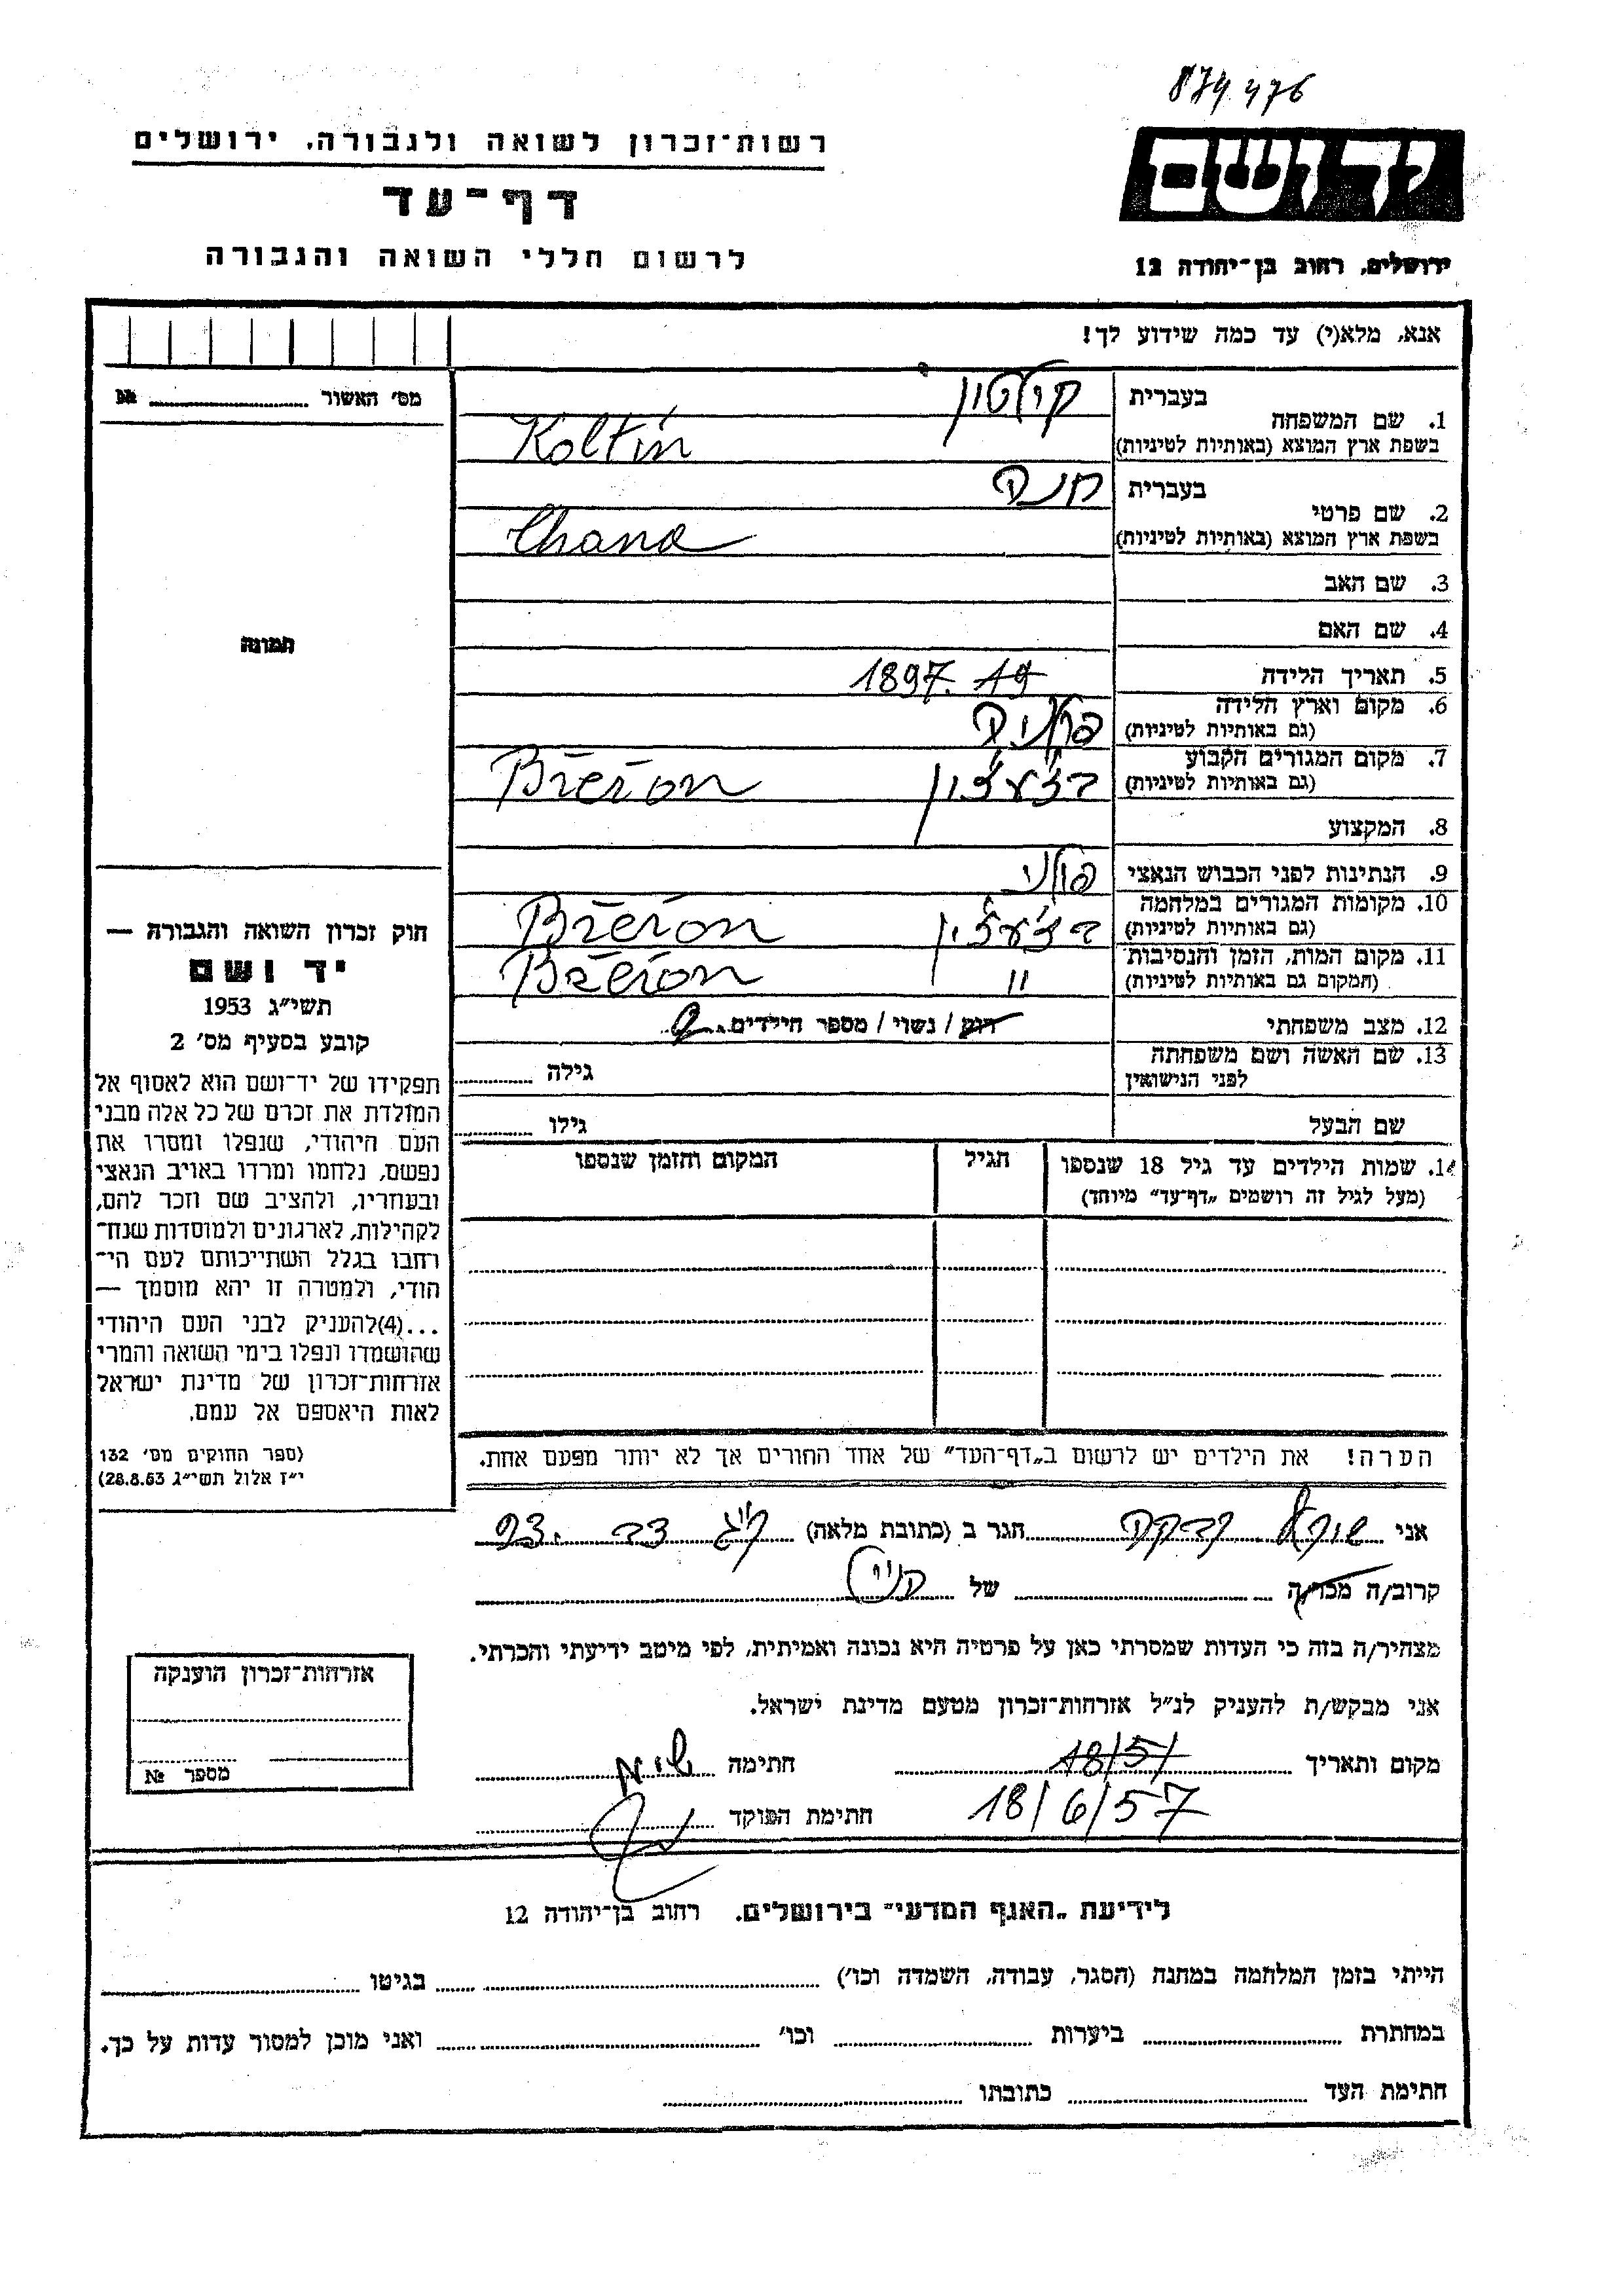 874476
רשות־זכרון לשואה ולגבורה, ירושלים
דף־עד
לרשום חללי השואה והגבורה
ידושם
ירושלים, רחוב בן־יהודה 12
אנא, מלא(י) עד כמה שידוע לך!
מס׳ האשור № 
1. שם המשפחה בעברית קולטין
בשפת ארץ המוצא (באותיות לטיניות) Koltin
2. שם פרטי בעברית חנה
בשפת ארץ המוצא (באותיות לטיניות) Chana
3. שם האב
4. שם האם
5. תאריך הלידה 1897. 19
6. מקום וארץ הלידה פולניה
(גם באותיות לטיניות)
7. מקום המגורים הקבוע Břeřon
(גם באותיות לטיניות)
8. המקצוע
9. הנתינות לפני הכבוש הנאצי פולני
10. מקומות המגורים במלחמה Břeřon
(גם באותיות לטיניות)
11. מקום המות, הזמן והנסיבות " Břeřon
(המקום גם באותיות לטיניות)
12. מצב משפחתי רווק / נשוי / מספר הילדים
13. שם האשה ושם משפחתה לפני הנישואין גילה
שם הבעל גילו
14. שמות הילדים עד גיל 18 שנספו
(מעל לגיל זה רושמים „דף־עד” מיוחד)
הגיל
המקום והזמן שנספו
תמונה
חוק זכרון השואה והגבורה —
יד ושם
תשי״ג 1953
קובע בסעיף מס׳ 2
תפקידו של יד־ושם הוא לאסוף אל
המולדת את זכרם של כל אלה מבני
העם היהודי, שנפלו ומסרו את
נפשם, נלחמו ומרדו באויב הנאצי
ובעוזריו, ולהציב שם וזכר להם,
לקהילות, לארגונים ולמוסדות שנח־
רחבו בגלל השתייכותם לעם הי־
הודי, ולמטרה זו יהא מוסמך —
...(4)להעניק לבני העם היהודי
שהושמדו ונפלו בימי השואה והמרי
אזרחות־זכרון של מדינת ישראל
לאות היאספם אל עמם.
(ספר החוקים מס׳ 132
י״ז אלול תשי״ג 28.8.53)
הערה! את הילדים יש לרשום ב„דף־העד” של אחד החורים אך לא יותר מפעם אחת.
אני רבקה הגר ב (כתובת מלאה)
קרוב/ה מכר/ה של
מצהיר/ה בזה כי העדות שמסרתי כאן על פרטיה היא נכונה ואמיתית, לפי מיטב ידיעתי והכרתי.
אני מבקש/ת להעניק לנ״ל אזרחות־זכרון מטעם מדינת ישראל.
מקום ותאריך 18/5/ חתימה
18/6/57 חתימת הפוקד
אזרחות־זכרון הוענקה
מספר №
לידיעת „האגף המדעי” בירושלים. רחוב בן־יהודה 12
הייתי בזמן המלחמה במחנה (הסגר, עבודה, השמדה וכו׳) בגיטו
במחתרת ביערות וכו׳ ואני מוכן למסור עדות על כך.
חתימת העד כתובתו